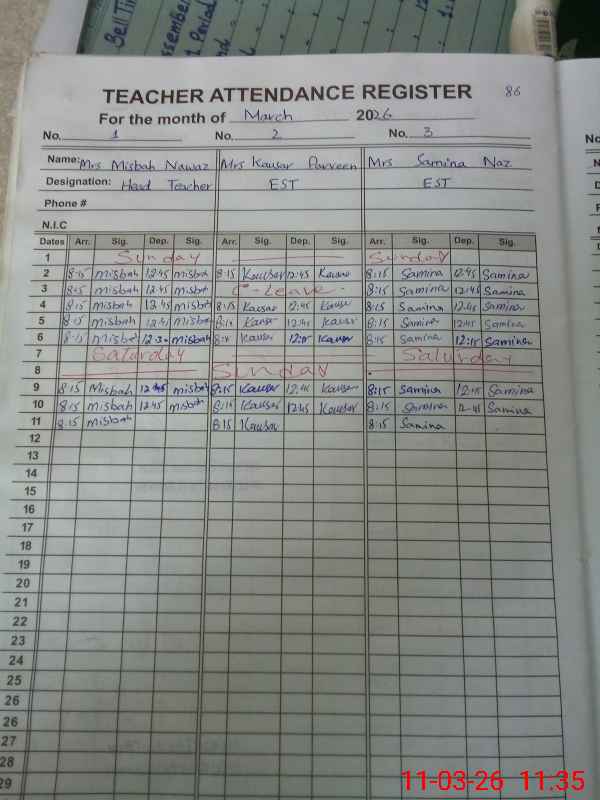 Bell Tim
Assembel
t Period
TEACHER ATTENDANCE REGISTER 86
For the month of March 2026
No. 1 No. 2 No. 3
Name: Mrs Misbah Nawaz Mrs Kausar Parveen Mrs Samina Naz
Designation: Head Teacher EST EST
Phone #
N.I.C
Dates Arr. Sig. Dep. Sig. Arr. Sig. Dep. Sig. Arr. Sig. Dep. Sig.
1 Sunday Sunday
2 8:15 misbah 12:45 misbah 8:15 Kausar 12:45 Kausar 8:15 Samina 12:45 Samina
3 8:15 misbah 12:45 misbah C-Leave 8:15 Samina 12:45 Samina
4 8:15 misbah 12:45 misbah 8:15 Kausar 12:45 Kausar 8:15 Samina 12:45 Samina
5 8:15 misbah 12:45 misbah 8:15 Kausar 12:45 Kausar 8:15 Samina 12:45 Samina
6 8:15 misbah misbah Kausar 12:15 Kausar 8:15 Samina 12:15 Samina
7 Saturday Saturday
8 Sunday
9 8:15 Misbah 12:45 misbah 8:15 Kausar 12:45 Kausar 8:15 Samina 12:45 Samina
10 8:15 misbah 12:45 misbah 8:15 Kausar 12:45 Kausar 8:15 Samina 12:45 Samina
11 8:15 misbah 8:15 Kausar 8:15 Samina
12
13
14
15
16
17
18
19
20
21
22
23
24
25
26
26
27
28
29
11-03-26 11.35